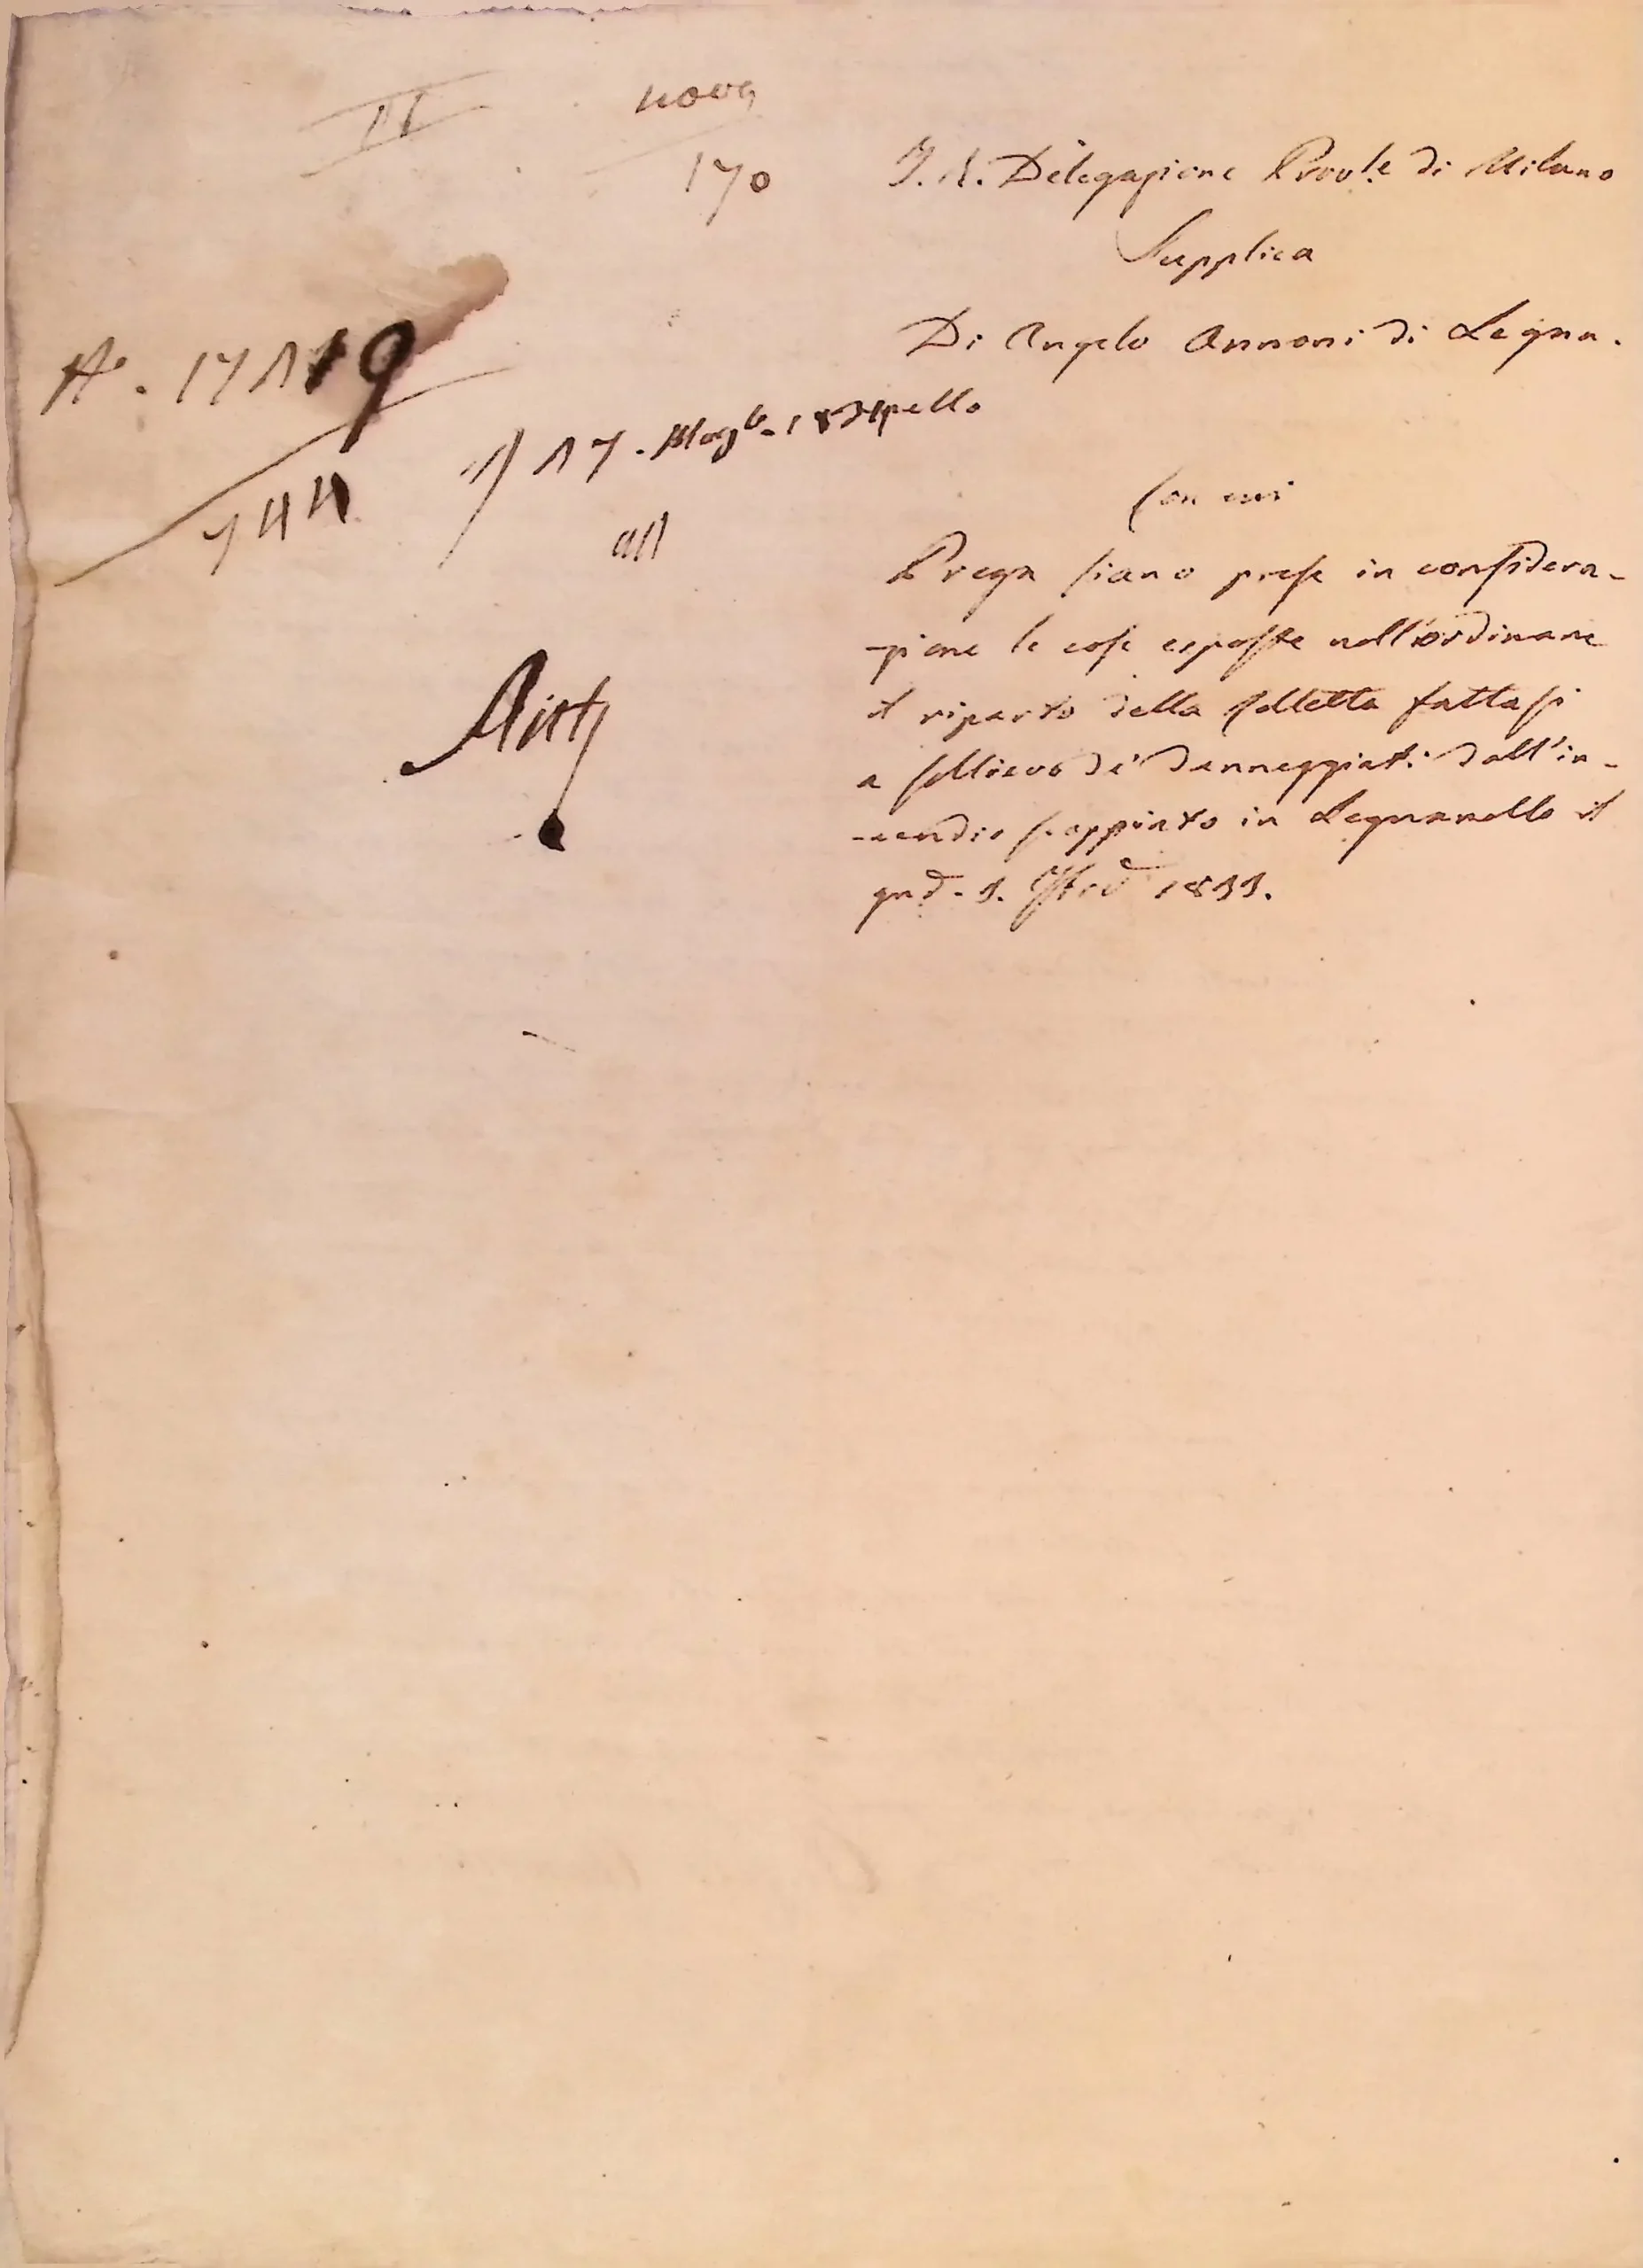 II
nova
170
I. R. Delegazione Prov.le di Milano
Supplica
Di Angelo Annoni di Legna.
N°. 17119
17
Con cui
Prega siano prese in considera-
-zione le cose esposte nell'ordinare
il riparto della Colletta fattasi
a sollievo de' danneggiati dall'in-
-cendio scoppiato in Legnanello il
1833.